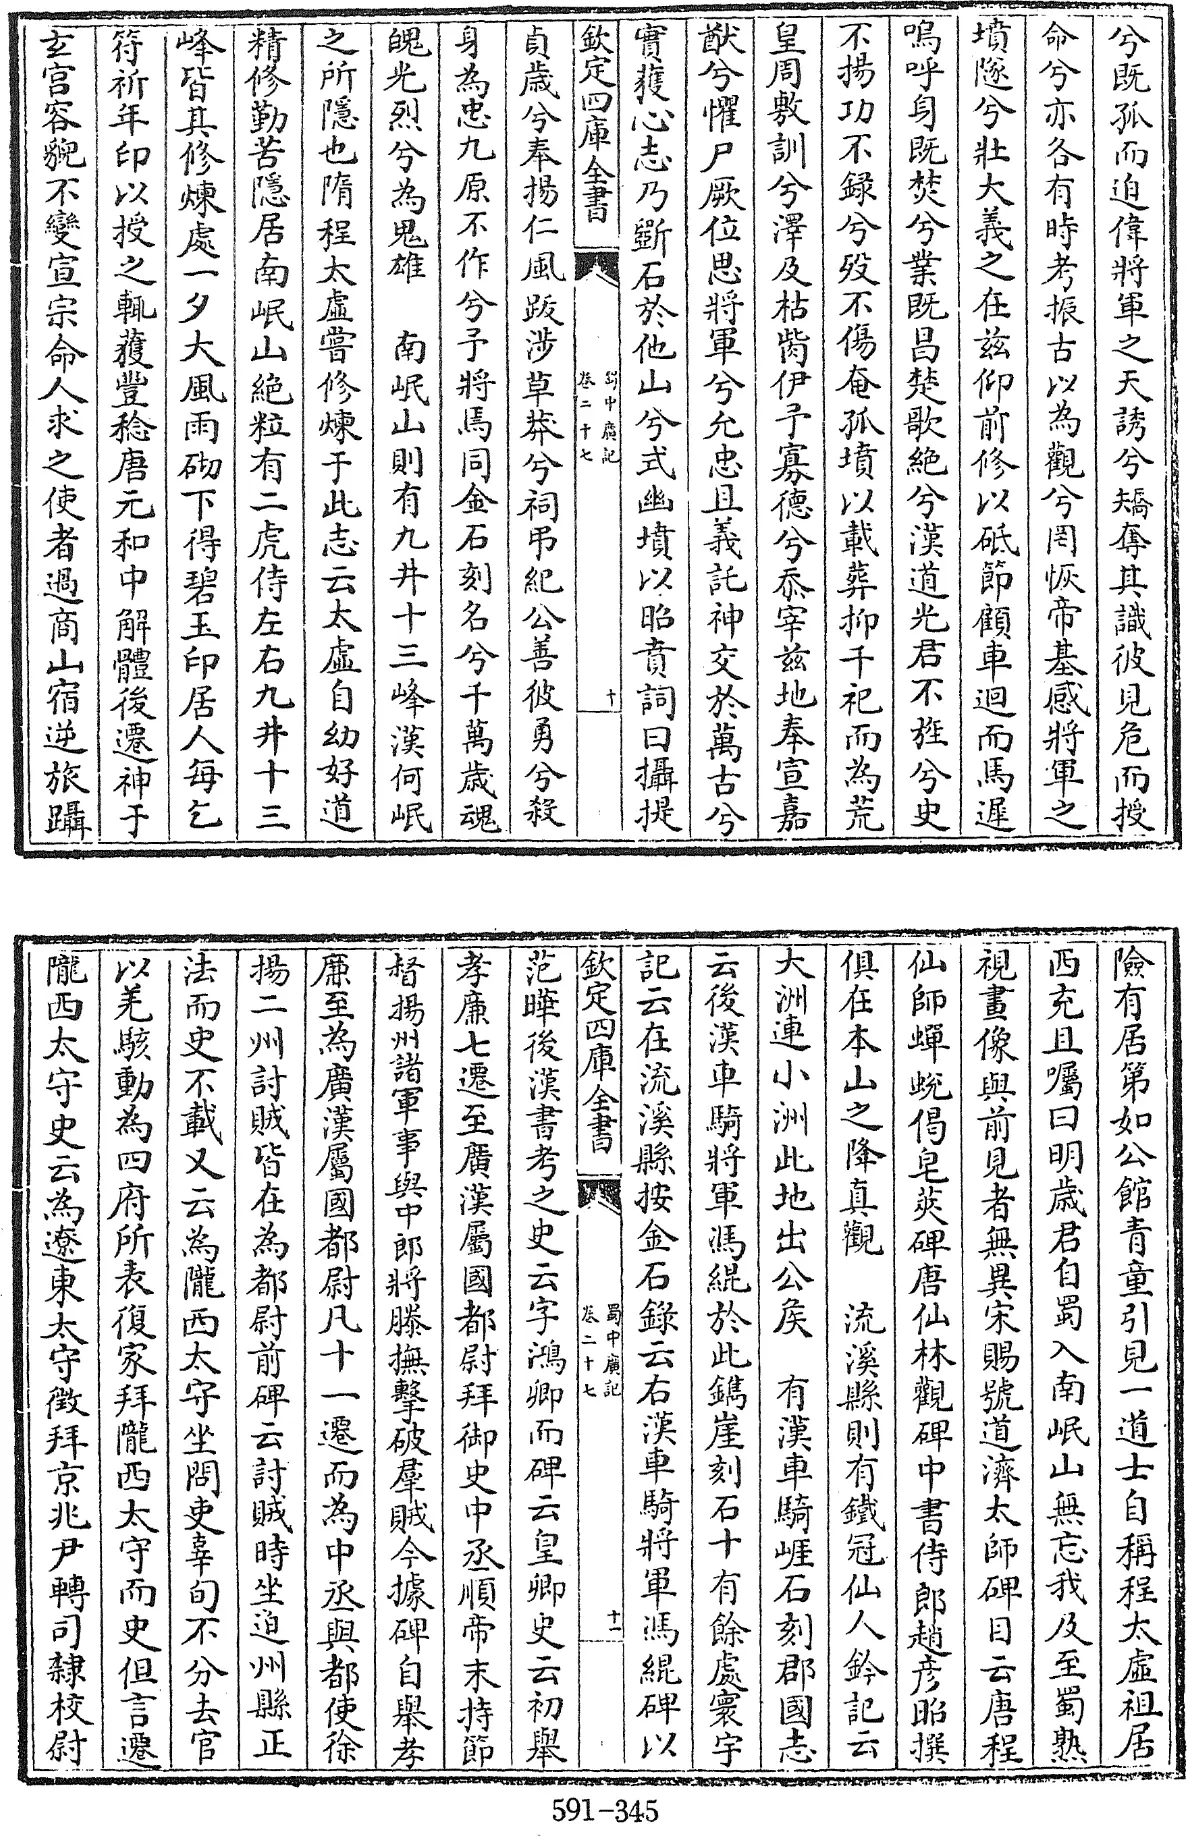 兮既孤而迫偉將軍之天誘兮矯奪其識彼見危而授
命兮亦各有時考振古以為觀兮罔恢帝基感將軍之
墳隧兮壯大義之在兹仰前修以砥節顧車迴而馬遲
嗚呼身既焚兮業既昌楚歌絶兮漢道光君不旌兮史
不揚功不録兮殁不傷奄孤墳以載葬抑千祀而為荒
皇周敷訓兮澤及枯胔伊予寡德兮忝宰兹地奉宣嘉
猷兮懼尸厥位思將軍兮允忠且義託神交於萬古兮
實獲心志乃斵石於他山兮式幽墳以昭賁詞曰攝提
欽定四庫全書
蜀中廣記
卷二十七
十
貞歲兮奉揚仁風跋涉草莽兮祠弔紀公善彼勇兮殺
身為忠九原不作兮予將焉同金石刻名兮千萬歲魂
魄光烈兮為鬼雄　南岷山則有九井十三峰漢何岷
之所隱也隋程太虚嘗修煉于此志云太虚自幼好道
精修勤苦隱居南岷山絶粒有二虎侍左右九井十三
峰皆其修煉處一夕大風雨砌下得碧玉印居人每乞
符祈年印以授之輒獲豐稔唐元和中解體後遷神于
玄宫容貌不變宣宗命人求之使者過商山宿逆旅躡
險有居第如公館青童引見一道士自稱程太虚祖居
西充且囑曰明歲君自蜀入南岷山無忘我及至蜀熟
視畫像與前見者無異宋賜號道濟太師碑目云唐程
仙師蟬蜕偈皂莢碑唐仙林觀碑中書侍郎趙彦昭撰
俱在本山之降真觀　流溪縣則有鐵冠仙人鈐記云
大洲連小洲此地出公侯　有漢車騎崖石刻郡國志
云後漢車騎將軍馮緄於此鐫崖刻石十有餘處寰宇
記云在流溪縣按金石錄云右漢車騎將軍馮緄碑以
欽定四庫全書
蜀中廣記
卷二十七
十一
范曄後漢書考之史云字鴻卿而碑云皇卿史云初舉
孝廉七遷至廣漢屬國都尉拜御史中丞順帝末持節
督揚州諸軍事與中郎將滕撫擊破羣賊今據碑自舉孝
廉至為廣漢屬國都尉凡十一遷而為中丞與都使徐
揚二州討賊皆在為都尉前碑云討賊時坐迫州縣正
法而史不載又云為隴西太守坐問吏辜旬不分去官
以羌駭動為四府所表復家拜隴西太守而史但言遷
隴西太守史云為遼東太守徵拜京兆尹轉司隸校尉
591-345